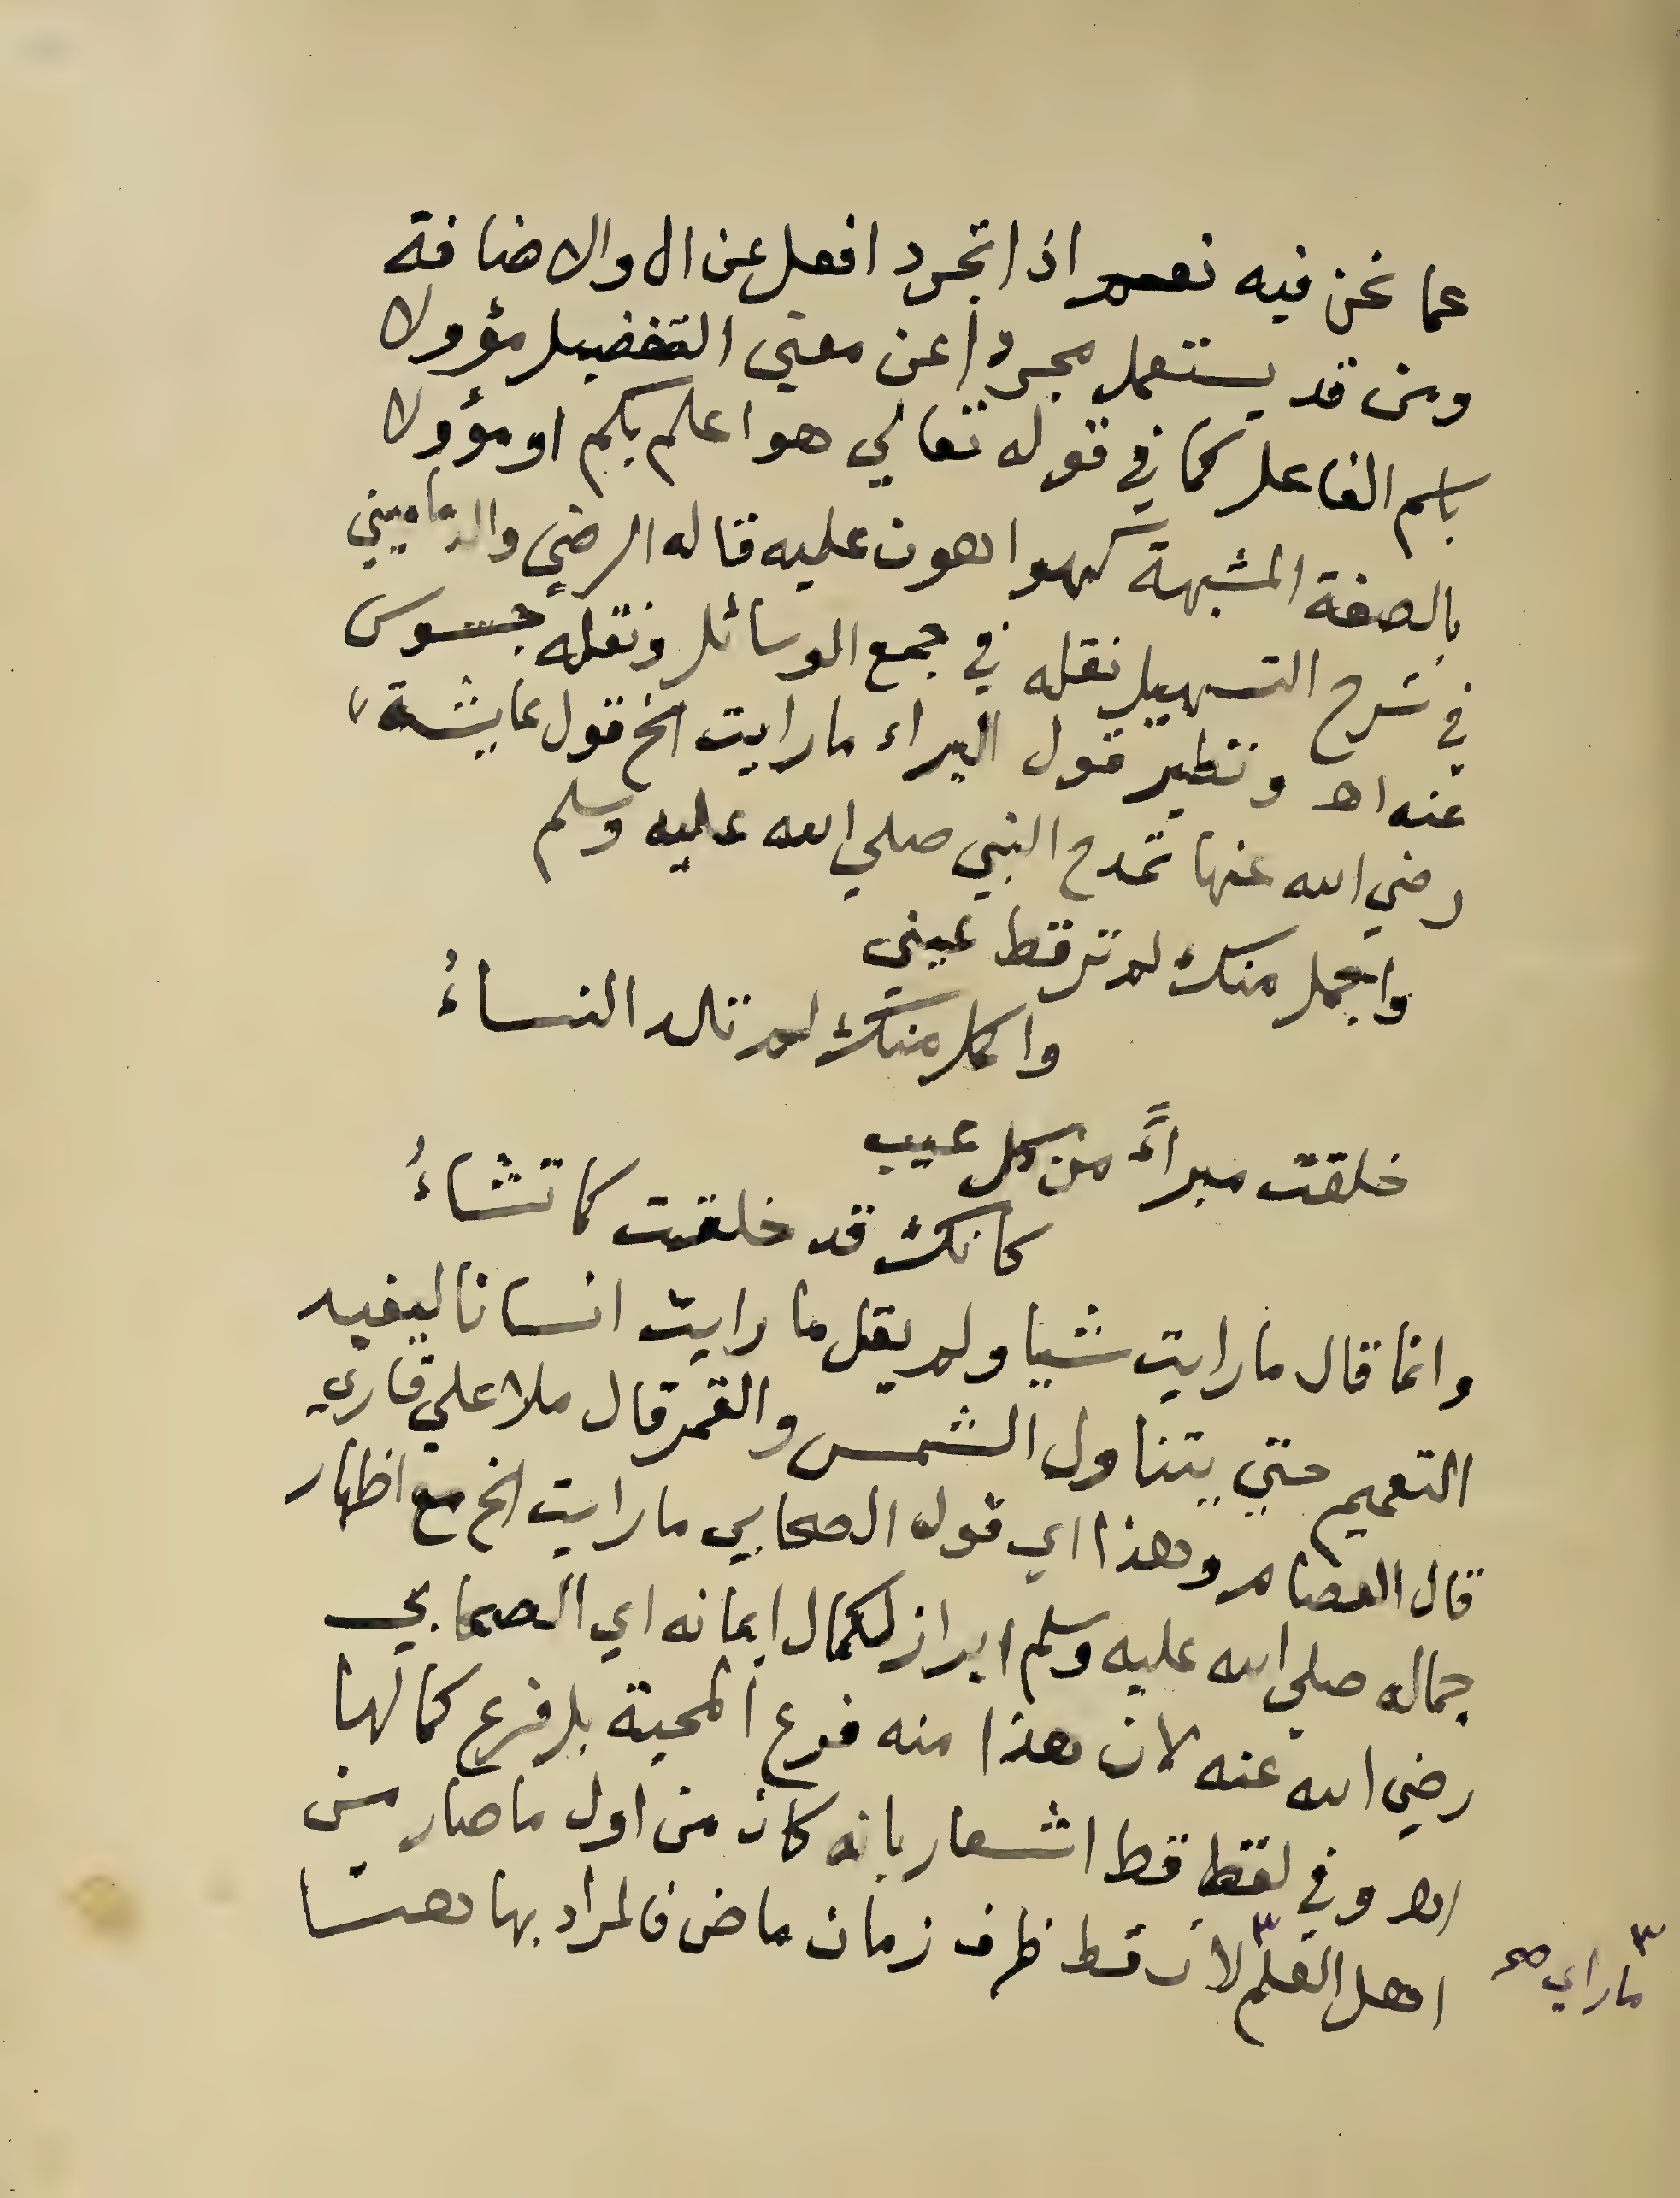 عما نحن فيه نعم اذا تجرد افعل عن ال والاضافة
ومن قد يستعمل مجردا عن معني التفضيل مؤولا
باسم الفاعل كما في قوله تعالي هو اعلم بكم او مؤولا
بالصفة المشبهة كهو اهون عليه قاله الرضي والدماميني
في شرح التسهيل نقله في جمع الوسائل ونقله جسوس
عنه اه ونظير قول البراء ما رايت الخ قول عايشة
رضي الله عنها تمدح النبي صلي الله عليه وسلم
واجمل منك لم تر قط عيني
واكمل منك لم تلد النساءُ
خلقت مبراءً من كل عيب
كانك قد خلقت كما تشاءُ
وانما قال ما رايت شيا ولم يقل ما رايت انسانا ليفيد
التعميم حتي يتناول الشمس والقمر قال ملا علي قاري
قال العصام وهذا اي قول الصحابي ما رايت الخ مع اظهار
جماله صلي الله عليه وسلم ابراز لكمال ايمانه اي الصحابي
رضي الله عنه لان هذا منه فرع المحبة بل فرع كمالها
اه وفي لفظ قط اشعار بانه كان من اول ما صار من
اهل العلم ٣ لان قط ظرف زمان ماض فالمراد بها هنا
٣ ما راي صح